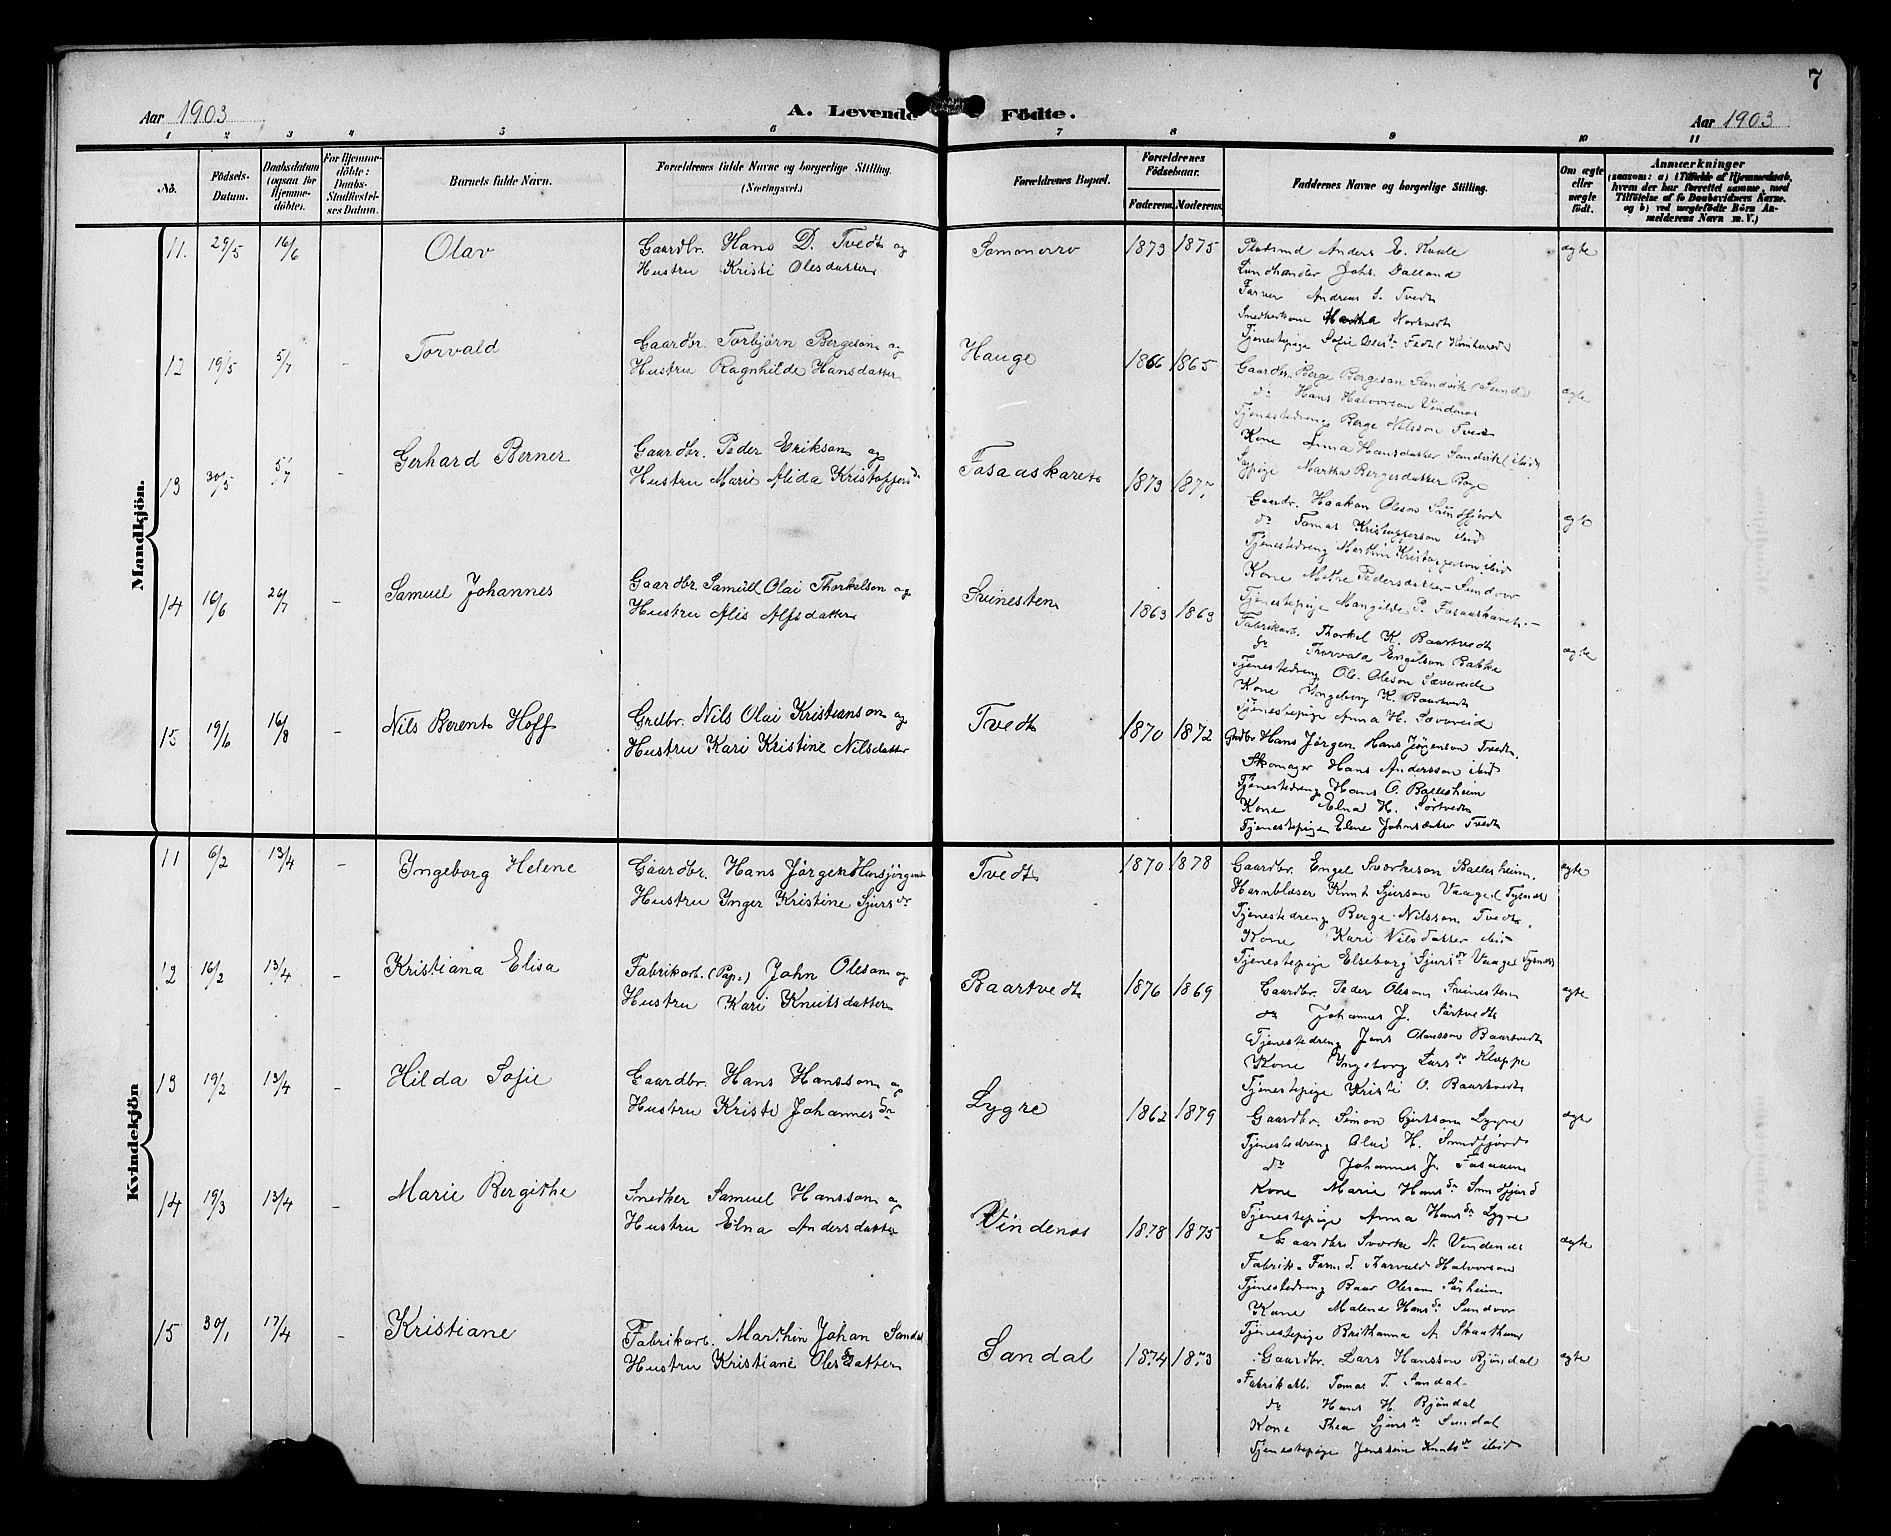 7
Aar 1903
A. Levende Födte.
Aar 1903
1 2 3 4 5 6 7 8 9 10 11
No.
Födsels-Datum.
Daabsdatum (ogsaa for Hjemmedöbte).
For Hjemmedöbte: Daabs-Stadfæstelses Datum.
Barnets fulde Navn.
Forældrenes fulde Navne og borgerlige Stilling.
(Næringsvei.)
Forældrenes Bopæl.
Forældrenes Födselsaar.
Faderens. Moderens.
Faddernes Navne og borgerlige Stilling.
Om ægte eller uægte födt.
Anmærkninger
(saasom: a) i Tilfælde af Hjemmedaab, hvem der har forrettet samme, med Tilföielse af to Daabsvidners Navne. og b) ved uægtefödte Börn Anmelderens Navn m. V.)
Mandkjön.
11. 29/5 16/6 Olav
Gaardbr. Hans D. Tvedt og
Hustru Kristi Olesdatter
Sommerro 1873 1875
Anders E.
Landhandler Johs. Dalland
Andreas S. Tvedt
Snedkerkone Martha Nortvedt
Tjenestepige Sofie Oles dr
ægte
12 19/5 5/7 - Torvald
Gaardbr. Torbjörn Bergeson og
Hustru Ragnhilde Hansdatter
Hauge 1866 1865
Gaardbr. Berge Bergeson Sandvik (Sund)
do Hans Halvorson Vindenes
Tjenestedreng Berge Nilsson Tvedt
Kone Anna Hansdatter Sandvik
Martha Bergesdatter
ægte
13 30/5 5/7 - Gerhard Berner
Gaardbr. Peder Erikson og
Hustru Marie Alida Kristoffersd.
Fosaaskaret 1873 1877
Gaardbr. Haakon Oleson Sundfjord
do Tomas Kristofferson ibid
Tjenestedreng Marthin Kristofferson ibid
Kone Methe Pedersdatter Sundvor
Tjenestepige Mangilde P. Fosaaskaret
ægte
14 16/6 26/7 - Samuel Johannes
Gaardbr. Samuel Olai Thorkelson og
Hustru Alis Alfsdatter
Svinesten 1863 1863
Fabrikarb. Thorkel K. Baartvedt
do Thorvald Engelson Bakke
Tjenestedreng Ole Oleson Sævareide
Kone Ingeborg K. Baartvedt
Tjenestepige Anna H. Sævareid
ægte
15 19/6 16/8 - Nils Berent Hoff
Grdbr. Nils Olai Kristianson og
Hustru Kari Kristine Nilsdatter
Tvedt 1870 1872
Grdbr Hans Jörgen Hans Jörgenson Tvedt
Skomager Hans Andersson ibid
Tjenestedreng Hans O. Ballesheim
Kone Elna H. Sörtvedt
Tjenestepige Elene Johnsdatter Tvedt
Kvindekjön
11 6/2 13/4 - Ingeborg Helene
Gaardbr. Hans Jörgen Hansjörgens
Hustru Inger Kristine Sjurs dr
Tvedt 1870 1878
Gaardbr. Engel Sværkeson Ballesheim.
Hornblæser Knut Sjurson Vaage (Tysnes)
Tjenestedreng Berge Nilsson Tvedt
Kone Kari Nilsdatter ibid
Tjenestepige Elseborg Sjurs dr Vaage Tysnes)
ægte
12 16/2 13/4 - Kristiana Elisa
Fabrikarb. (Pap.) John Oleson og
Hustru Kari Knutsdatter
Baartvedt 1876 1869
Gaardbr. Peder Oleson Svinesten
do Johannes J. Sörtvedt
Tjenestedreng Jens Olausson Baartvedt
Kone Ingeborg Lars dr Kleppe
Tjenestepige Kristi O. Baartvedt
ægte
13 19/2 13/4 - Hilda Sofie
Gaardbr. Hans Hansson og
Hustru Kristi Johannes dr
Lygre 1862 1879
Gaardbr. Simon Gjertson Lygre
Tjenestedreng Olai H. Sundfjord
do Johannes J. Fosaaen
Kone Marie Hans dr Sundfjord
Tjenestepige Anna Hans dr Lygre
ægte
14 19/3 13/4 - Marie Bergithe
Snedker Samuel Hansson og
Hustru Elna Andersdatter
Vindenes 1878 1875
Gaardbr Sverke N. Vindenes
Fabrik. Torvald Halvorson
Tjenestedreng Baar Oleson Sörheim
Kone Malene Hans dr Sundvor
Tjenestepige Brithanna A.
ægte
15 30/1 17/4 - Kristiane
Fabrikarb. Marthin Johan Sandal
Hustru Kristiane Olesdatter
Sandal 1874 1873
Gaardbr. Lars Hansson Bjöndal
Fabrikarb. Tomas T. Sandal
do Hans H. Bjöndal
Kone Thea Sjurs dr Sandal
Tjenestepige Jenssine Knuts dr ibid
ægte